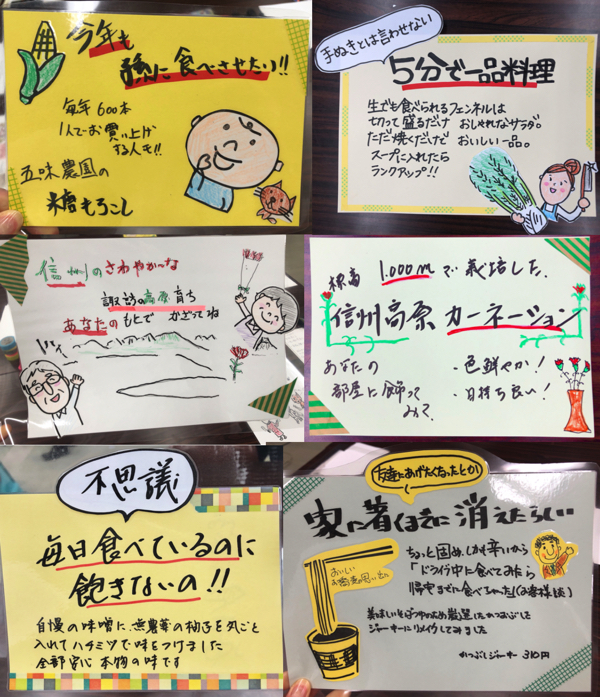 今年も
孫に食べさせたい!!
毎年600本
1人でお買い上げ
する人も!!
五味農園の
糖もろこし
手ぬきとは言わせない
5分で一品料理
生でも食べられるフェンネルは
切って盛るだけ おしゃれなサラダ。
ただ焼くだけで おいしい一品。
スープに入れたら
ランクアップ!!
信州のさわやか〜な
諏訪の高原育ち
あなたのもとで かざってね
標高
1.000mで栽培した
信州高原 カーネーション
あなたの
部屋に飾って
みて
・色鮮やか!
・日持ち良い!
不思議
毎日食べているのに
飽きないの!!
自慢の味噌に、無農薬の柚子を丸ごと
入れてハチミツで味をつけました
全部安心 本物の味です
友達にあげたくなったとか
家に着くまでに消えたらしい
おいしい
ちょっと固め、しかも辛いから
「ドライブ中に食べてみたら
帰宅までに食べちゃった」(お客様談)
美味しいそばつゆのため厳選したかつおぶしを
ジャーキーにリメイクしてみました
かつぶしジャーキー 310円